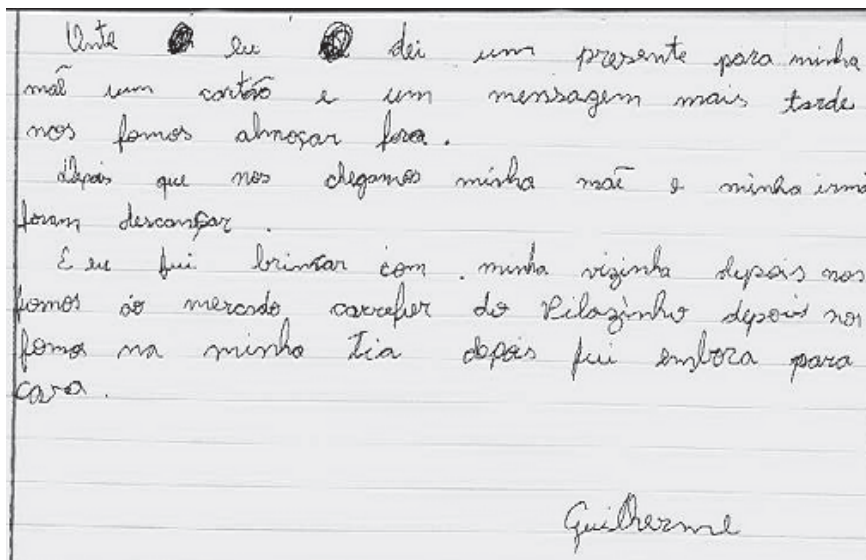 Onte eu dei um presente para minha
mãe um cartão e um mensagem mais tarde
nos fomos almoçar fora.
Depois que nos chegamos minha mãe e minha irmã
foram descançar.
E eu fui brincar com . minha vizinha depois nos
fomos ao mercado carrefer do Pilazinho depois nos
fomos na minha tia depois fui embora para
casa.
Guilherme